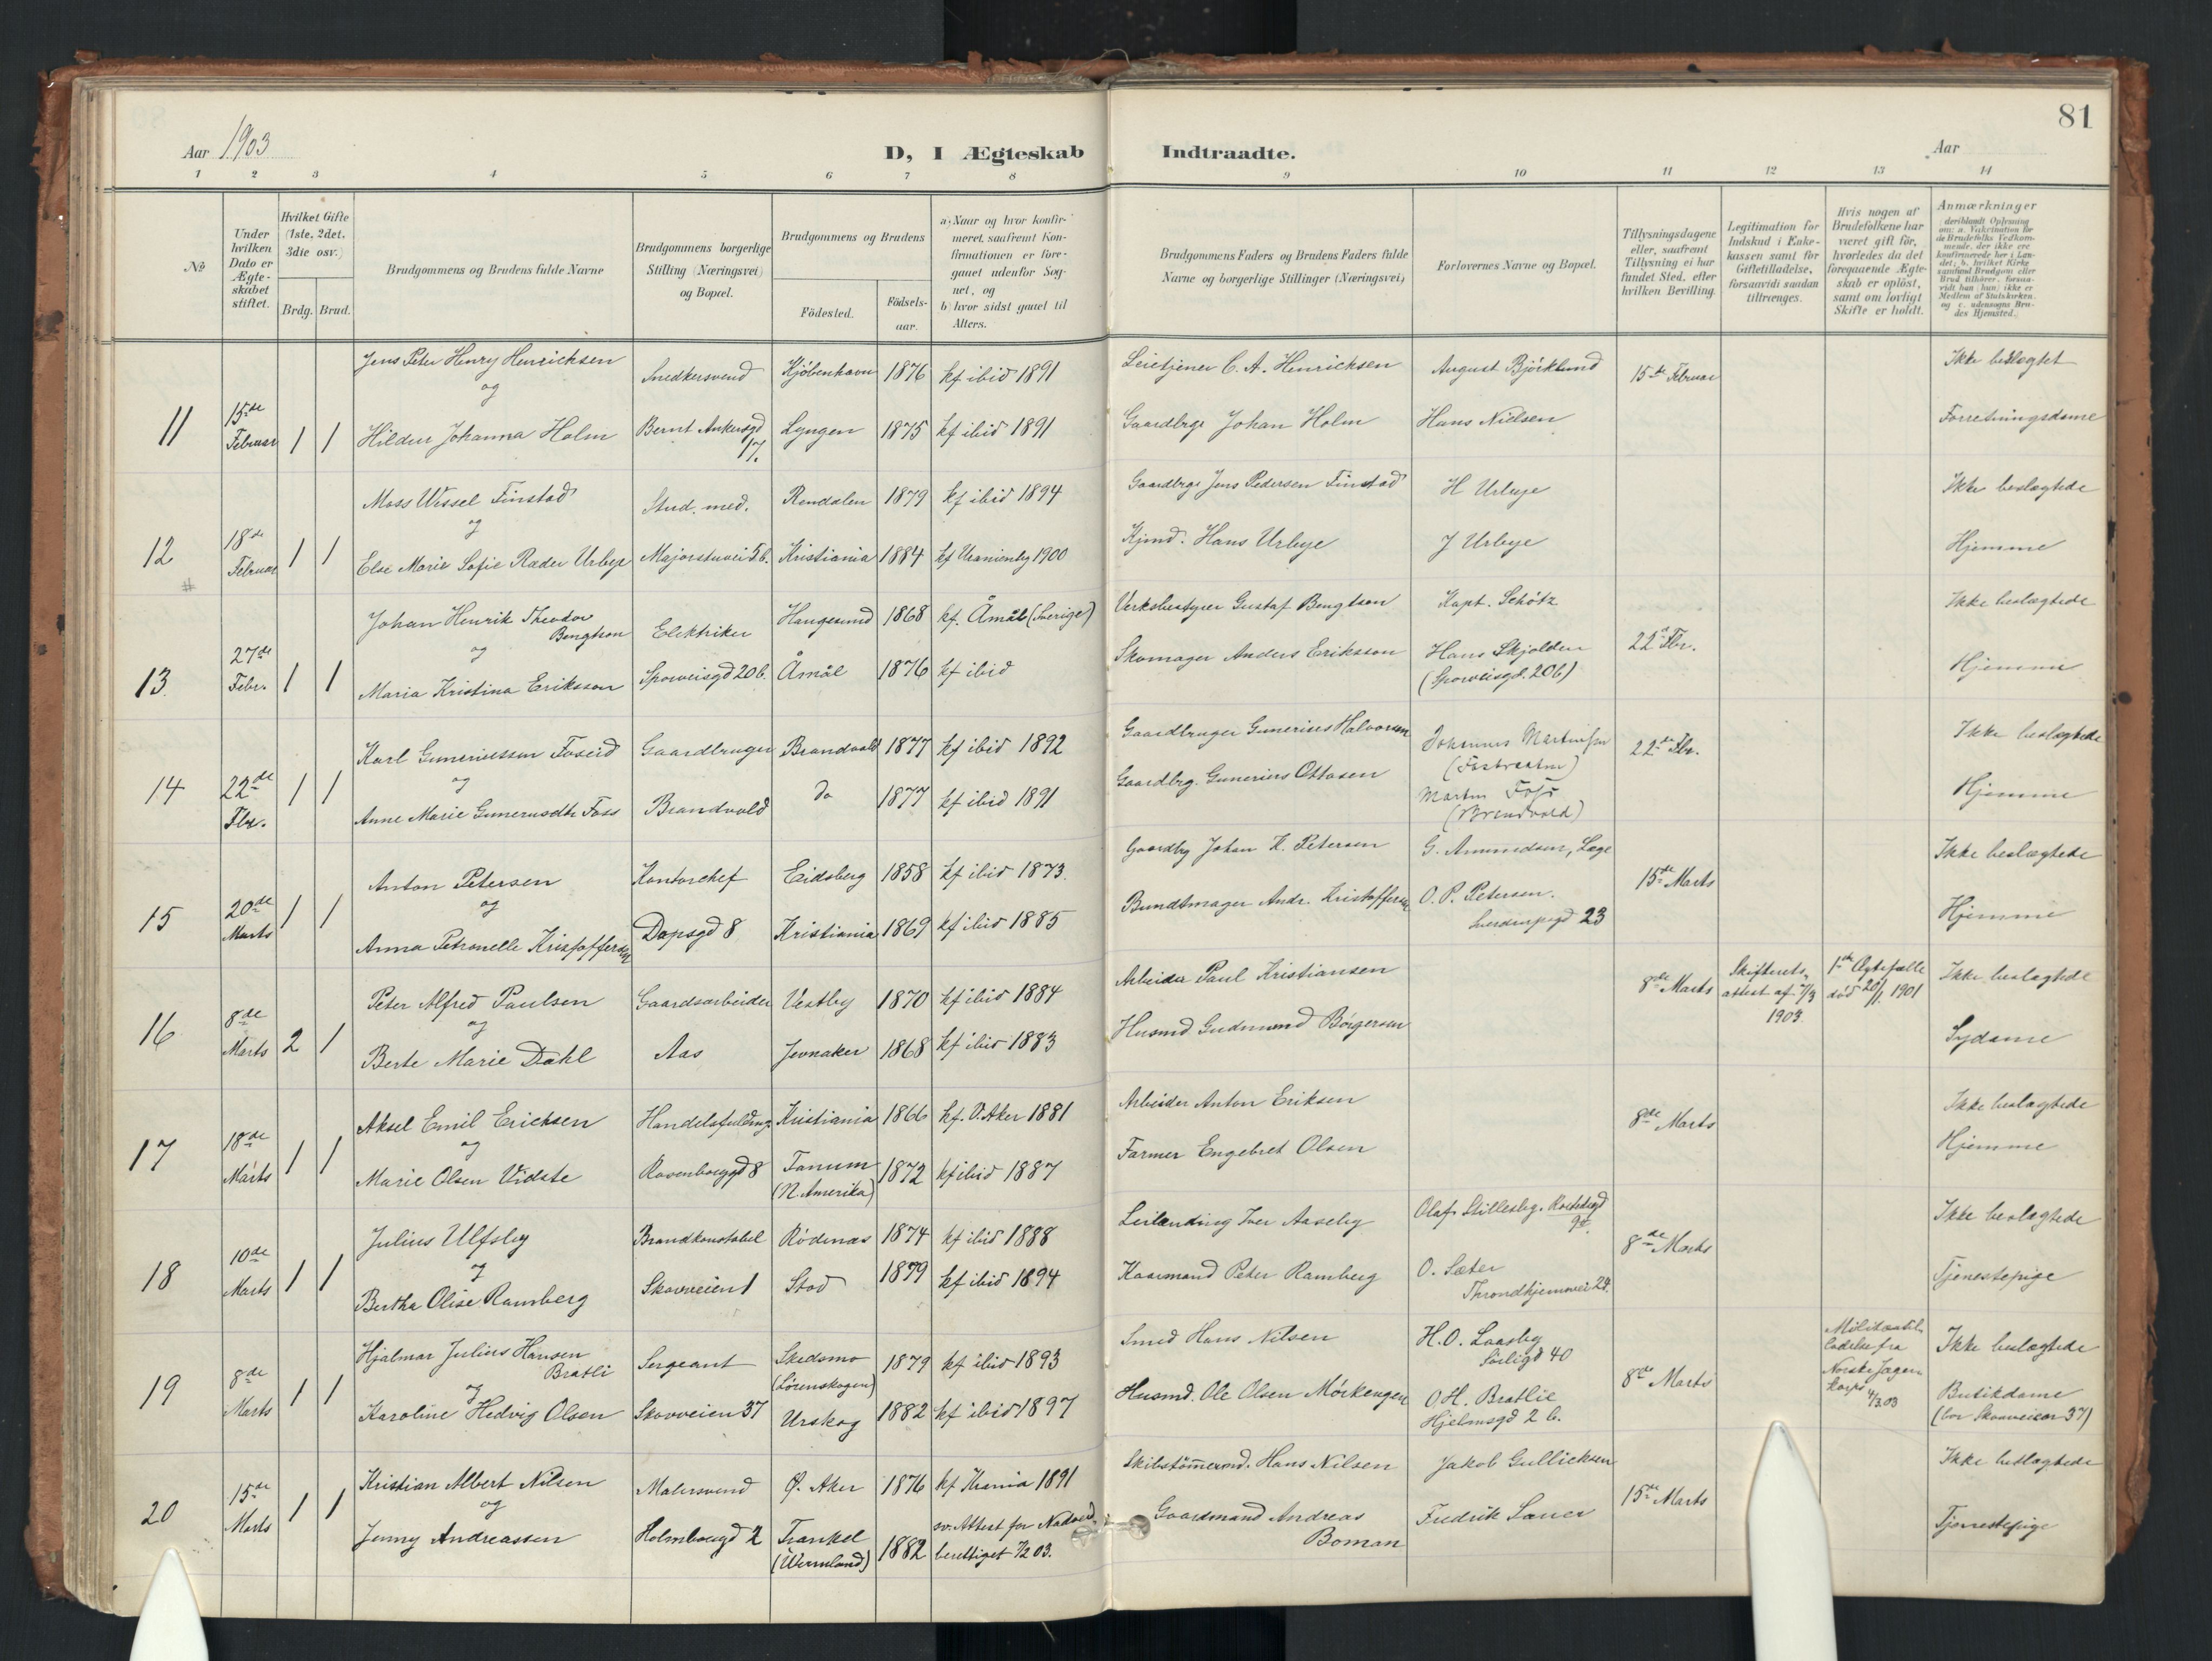 81
Aar 1903
D, I Ægteskab Indtraadte.
Aar
1 2 3 4 5 6 7 8 9 10 11 12 13 14
No
Under hvilken Dato er Ægteskabet stiftet.
Hvilket Gifte (1ste, 2det, 3die osv.)
Brdg. Brud.
Brudgommens og Brudens fulde Navne
Brudgommens borgerlige Stilling (Næringsvei) og Bopæl.
Brudgommens og Brudens
Födested.
Födsels-aar.
a) Naar og hvor konfirmeret, saafremt Konfirmationen er foregaaet udenfor Sognet, og
b) hvor sidst gaaet til Alters.
Brudgommens Faders og Brudens Faders fulde Navne og borgerlige Stillinger (Næringsvei)
Forlovernes Navne og Bopæl.
Tillysningsdagene eller, saafremt Tillysning ei har fundet Sted, efter hvilken Bevilling.
Legitimation for Indskud i Enkekassen samt for Giftetilladelse, forsaavidt saadan tiltrænges.
Hvis nogen af Brudefolkene har været gift för, hvorledes da det foregaaende Ægteskab er oplöst, samt om lovligt Skifte er holdt.
Anmærkninger
(deriblandt Oplysning om: a. Vakcination for de Brudefolks Vedkommende, der ikke ere konfirmerede her i Landet; b. hvilket Kirkesamfund Brudgom eller Brud tilhører, forsaavidt han (hun) ikke er Medlem af Statskirken, og c. udensogns Brudes Hjemsted.)
11
15de Februar
1 1
Jens Peter Henry Henricksen
og
Hildur Johanna Holm
Snedkersvend
Bernt Ankersgd 17.
Kjöbenhavn 1876 kf ibid 1891
Lyngen 1875 kf ibid 1891
Leietjener C. A. Henricksen
Gaardbrgr Johan Holm
August Björklund
Hans Nielsen
15de Februar
Ikke beslægtet
Forretningsdame
12
#
18de Februar
1 1
Moss Wessel Finstad
og
Else Marie Sofie Ræder Urbye
Stud. med.
Majorstuvei 5 b.
Rendalen 1879 kf ibid 1894
Kristiania 1884 kf Uranienbg 1900
Gaardbrgr Jens Pedersen Finstad
Kjmd. Hans Urbye
H Urbye
J Urbye
Ikke beslægtede
Hjemme
13.
27de Febr.
1 1
Johan Henrik Theodor Bengtson
og
Maria Kristina Eriksson
Elektriker
Sporveisgd 20 b.
Haugesund 1868 kf. Åmål (Sverige)
Åmål 1876 kf ibid
Verksbestyrer Gustaf Bengtson
Skomager Anders Eriksson
Kapt. Schötz
Hans Skjolden
(Sporveisgd. 20 b)
22de Fbr.
Ikke beslægtede
Hjemme
14
22de Fbr.
1 1
Karl Guneriussen Foseid
og
Anne Marie Guneriusdtr Foss
Gaardbruger
Brandvold
Brandvold 1877 kf ibid 1892
do 1877 kf ibid 1891
Gaardbruger Gunerius Halvorsen
Gaardbrg. Gunerius Ottosen
Johannes Martinsen
Martin Foss
(Brandvold)
22de Fbr.
Ikke beslægtede
Hjemme
15
20de Marts
1 1
Anton Petersen
og
Anna Petronelle Kristoffersen
Kontorchef
Dopsgd 8
Eidsberg 1858 kf ibid 1873.
Kristiania 1869 kf ibid 1885
Gaardbg Johan K. Petersen
Bundtmager Andr. Kristoffersen
G. Amundsen, Læge
O. P. Petersen.
23
15de Marts
Ikke beslægtede
Hjemme
16
8de Marts
2 1
Peter Alfred Paulsen
og
Berte Marie Dahl
Gaardsarbeider
Aas
Vestby 1870 kf ibid 1884
Jevnaker 1868 kf ibid 1883
Arbeider Paul Kristiansen
Husmd Gudmund Börgersen
8de Marts
Skifterets-attest af 7/3 1903.
1ste Ægtefælle död 20/1 1901
Ikke beslægtede
Sydame
17
18de Marts
1 1
Aksel Emil Ericksen
og
Marie Olsen Vidste
Handelsfuldm.
Rosenborggd 8
Kristiania 1866 kf. V. Aker 1881
Tanum
(N. Amerika) 1872 kf ibid 1887
Arbeider Anton Eriksen
Farmer Engebret Olsen
8de Marts
Ikke beslægtede
Hjemme
18
10de Marts
1 1
Julius Ulfsby
og
Bertha Olise Ramberg
Brandkonstabel
Skovveien 1
Rödenæs 1874 kf ibid 1888
Stod 1879 kf ibid 1894
Leilænding Iver Aaseby
Kaarmand Peter Ramberg
Olaf Stillesby.
O. Sæter
Throndhjemsvei 2 d.
8de Marts
Ikke beslægtede
Tjenestepige
19
8de Marts
1 1
Hjalmar Julius Hansen Bratli
og
Karoline Hedvig Olsen
Sergeant
Skovveien 37
Skedsmo
(Lörenskogen) 1879 kf ibid 1893
Urskog 1882 kf ibid 1897
Smed Hans Nilsen
Husmd. Ole Olsen Mörkengen
H. O. Laasby
Sörligd 40
O. H. Bratlie
Hjelmsgd 2 b.
8de Marts
Militærtilladelse fra Norske Jægerkorps 4/3 03
Ikke beslægtede
Butikdame
(bor Skovveien 37)
20
15de Marts
1 1
Kristian Albert Nilsen
og
Jenny Andreassen
Malersvend
Holmboegd 2
Ø. Aker 1876 kf Krania 1891
Trankel
(Wermland) 1882
sv. Attest for Nadverdberettiget 7/2 03.
Skibstömmermd. Hans Nilsen
Gaardmand Andreas Boman
Jakob Gullicksen
Fredrik Lauer
15de Marts
Ikke beslægtede
Tjenestepige